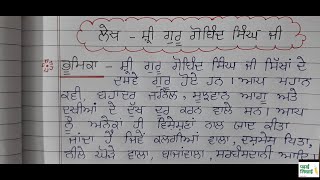 ਲੇਖ - ਸ਼੍ਰੀ ਗੁਰੂ ਗੋਬਿੰਦ ਸਿੰਘ ਜੀ
ਭੂਮਿਕਾ - ਸ਼੍ਰੀ ਗੁਰੂ ਗੋਬਿੰਦ ਸਿੰਘ ਜੀ ਸਿੱਖਾਂ ਦੇ
ਦਸਵੇਂ ਗੁਰੂ ਹੋਏ ਹਨ। ਆਪ ਮਹਾਨ
ਕਵੀ, ਬਹਾਦਰ ਜਰਨੈਲ, ਸੂਝਵਾਨ ਆਗੂ ਅਤੇ
ਦੁਖੀਆਂ ਦੇ ਦੁੱਖ ਦੂਰ ਕਰਨ ਵਾਲੇ ਸਨ। ਆਪ
ਨੂੰ ਅਨੇਕਾਂ ਹੀ ਵਿਸ਼ੇਸ਼ਣਾਂ ਨਾਲ ਯਾਦ ਕੀਤਾ
ਜਾਂਦਾ ਹੈ ਜਿਵੇਂ ਕਲਗੀਆਂ ਵਾਲਾ, ਦਸ਼ਮੇਸ਼ ਪਿਤਾ,
ਨੀਲੇ ਘੋੜੇ ਵਾਲਾ, ਬਾਜਾਂਵਾਲਾ, ਸਰਬੰਸਦਾਨੀ ਆਦਿ